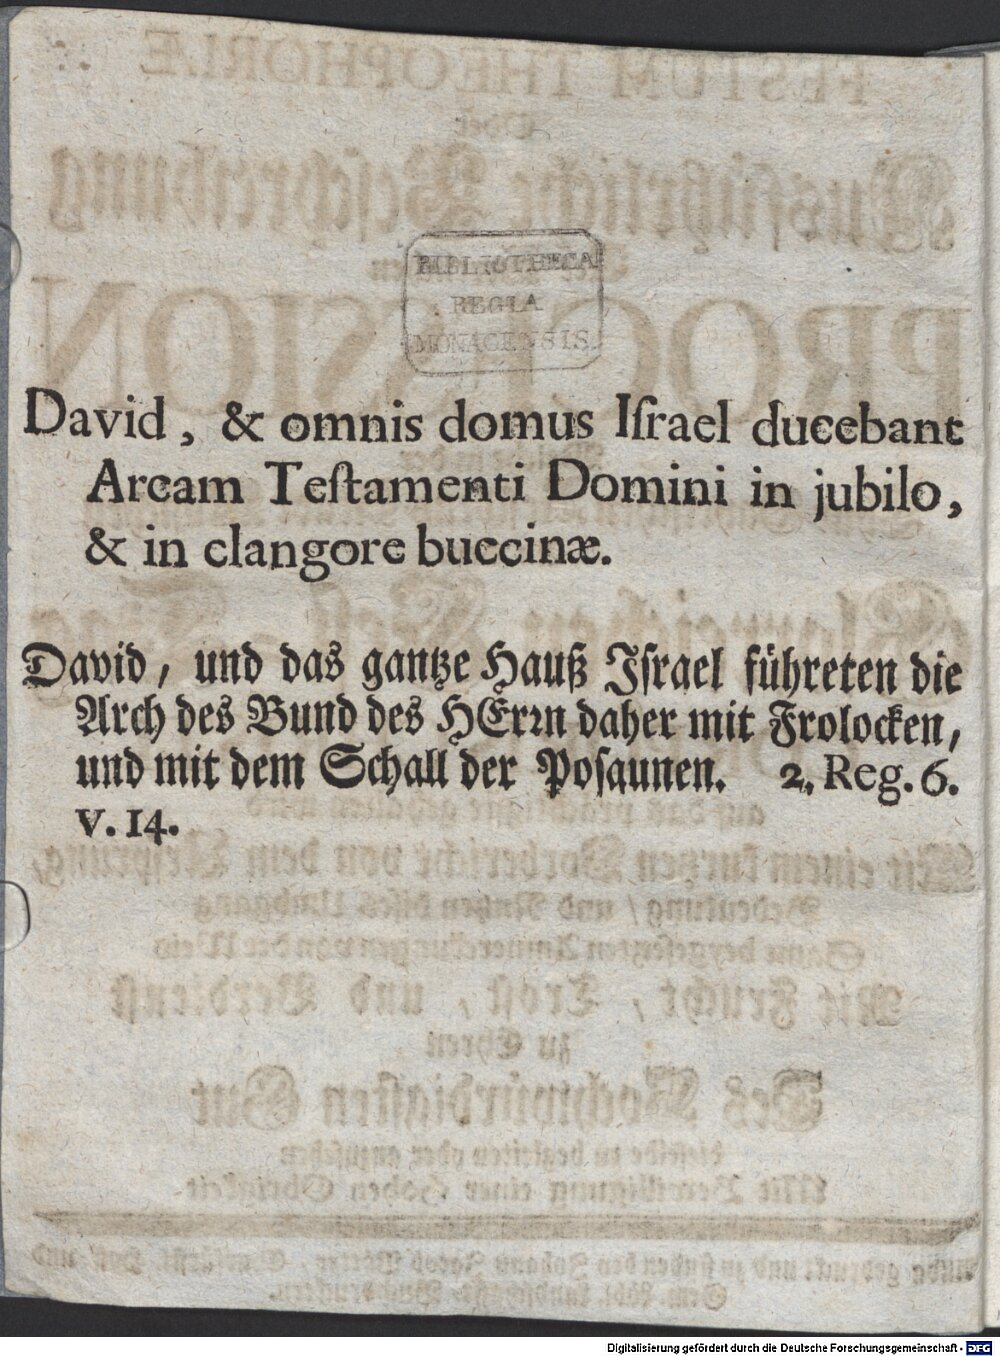 BIBLIOTHECA
REGIA
MONACENSIS.
David, & omnis domus Iſrael ducebant
Arcam Teſtamenti Domini in jubilo,
& in clangore buccinæ.
David, und das gantze Hauß Iſrael führeten die
Arch des Bund des HErꝛn daher mit Frolocken,
und mit dem Schall der Poſaunen. 2. Reg. 6.
v. 14.
Digitalisierung gefördert durch die Deutsche Forschungsgemeinschaft - DFG